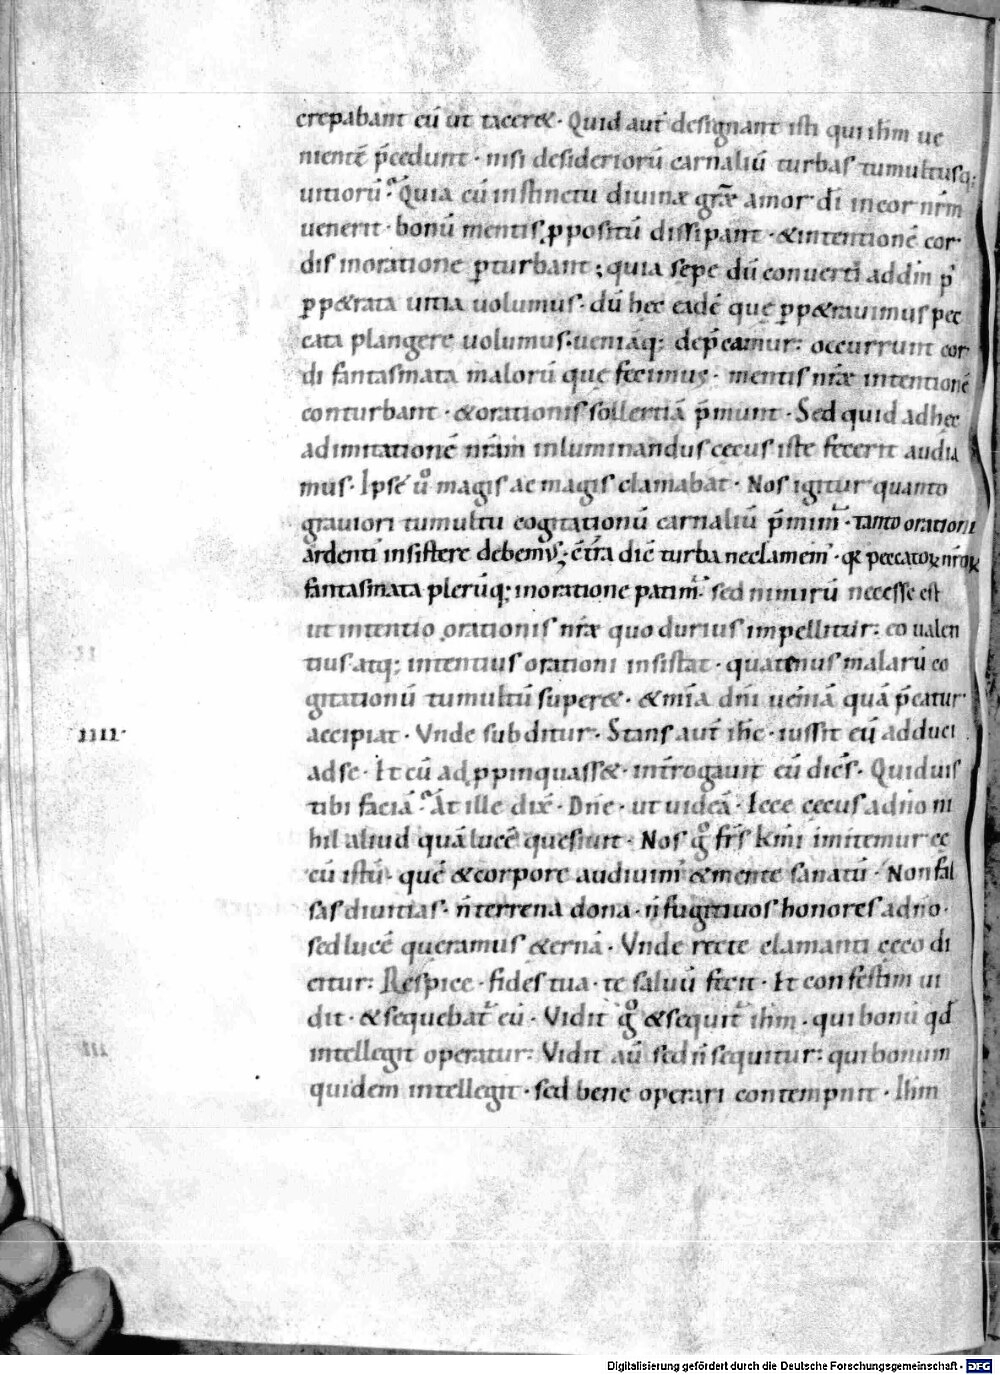 crepabant eū ut taceret · Quid aut̄ designant isti qui ihm ue
nientē p̄cedunt · nisi desideriorū carnaliū turbas tumultusq;
uitiorū · Quia cū instinctu diuinæ græ̅ amor di̅ in cor nr̄m
uenerit · bonū mentis ꝓpositū dissipant · & intentionē cor
dis in oratione ꝑturbant ; quia sepe dū conuerti ad dm̄ p̄
ꝑpetrata uitia uolumus · dū hec eadē que ꝑpetrauimus pec
cata plangere uolumus · ueniāq; dep̄camur : occurrunt cor
di fantasmata malorū que fecimus · mentis nr̄æ intentionē
conturbant · & orationis sollertiā p̄munt · Sed quid ad hec
ad imitationē nr̄am inluminandus cecus iste fecerit audia
mus · Ipse ū magis ac magis clamabat · Nos igitur quanto
grauiori tumultu cogitationū carnaliū p̄mim̄ · tanto orationi
ardenti insistere debem; c̄tra diē turba ne clamem̄ · qꝛ peccatoꝝ nr̄oꝝ
fantasmata plerūq; in oratione patim̄ · sed nimirū necesse est
ut intentio orationis nr̄æ quo durius impellitur : eo ualen
tius atq; intentius orationi insistat · quatenus malarū co
gitationū tumultū superet · & mīa dn̄i ueniā quā p̄catur
accipiat · Vnde subditur · Stans aut̄ ihc · iussit eū adduci
IIII ·
ad se · Et cū adꝓpinquasset · int̄rogauit eū dicēs · Quid uis
tibi faciā · At ille dix̄ · Dn̄e · ut uideā · Ecce cecus a dn̄o ni
hil aliud quā lucē quesiuit · Nos g̊ fr̄s kmi imitemur ce
cū istū · quē & corpore audiuim̄ & mente sanatū · Non fal
sas diuitias · n̄ terrena dona · n̄ fugitiuos honores a dn̄o ·
sed lucē queramus æternā · Vnde recte clamanti ceco di
citur : Respice · fides tua · te saluū fecit · Et confestim ui
dit · & sequebat̄ eū · Vidit g̊ & sequit̄ ihm · qui bonū qd̄
intellegit operatur : Vidit aū sed n̄ sequitur : qui bonum
quidem intellegit · sed bene operari contempnit · Ihm
Digitalisierung gefördert durch die Deutsche Forschungsgemeinschaft · DFG